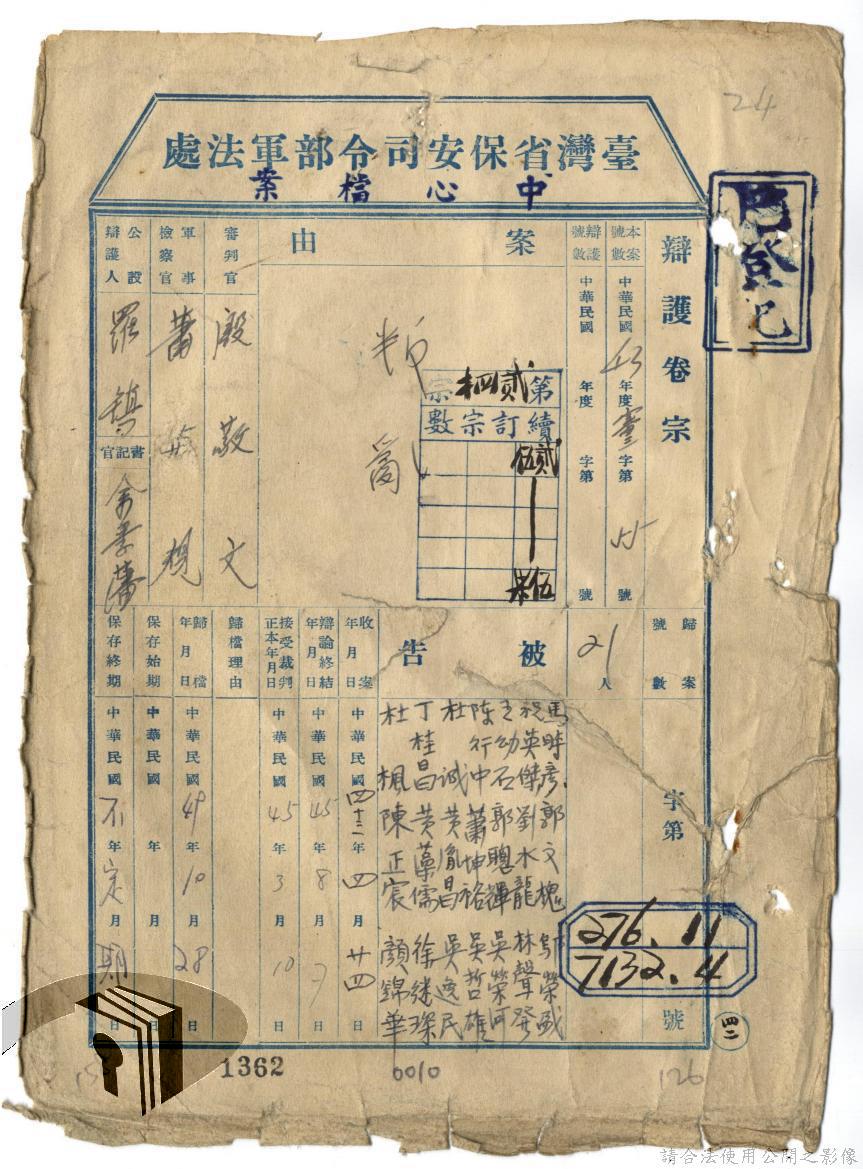 24
臺灣省保安司令部軍法處
中心檔案
已登記
辯護卷宗
本案號數 中華民國43年度 字第55號
辯護號數 中華民國 年度 字第 號
案由
叛亂
第貳拾四宗
續訂宗數
貳伍
伍
審判官 殷敬文
軍事檢察官 蕭
公設辯護人 羅
書記官
歸案號數 字第 號
21人
被告
馬時彥 郭文槐 鄔榮盛
祝英傑 劉水龍 林聲發
王幼石 郭聰輝 吳榮河
陳行中 蕭坤裕 吳哲雄
杜誠 黃胤昌 吳逸民
丁桂昌 黃藻儒 徐继琛
杜楓 陳正宸 顏錦華
收案年月日 中華民國四十三年四月廿四日
辯論終結年月日 中華民國45年8月7日
接受裁判正本年月日 中華民國45年3月10日
歸檔理由
歸檔年月日 中華民國49年10月28日
保存始期 中華民國 年 月 日
保存終期 中華民國不年定月期日
276.11
7132.4
四二
1362
0010
126
請合法使用公開之影像